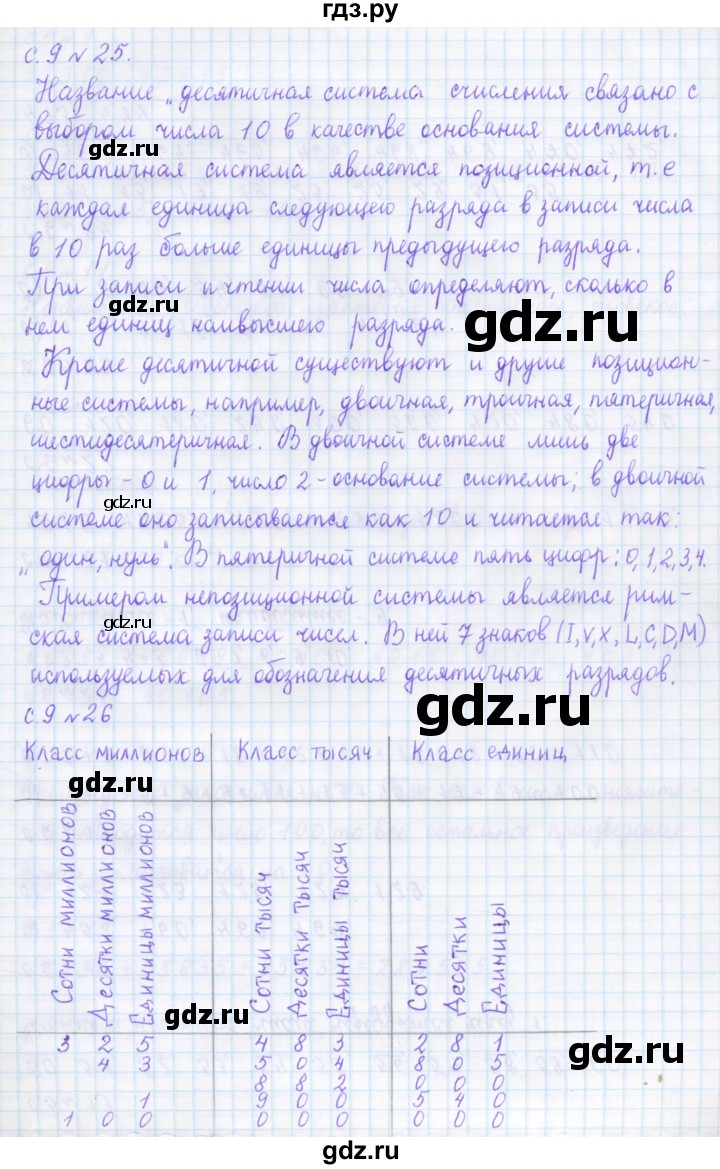 гдз.ру
с.9 №25.
Название „десятичная система счисления связано с
выбором числа 10 в качестве основания системы.
Десятичная система является позиционной, т.е
gdz.ru
каждая единица следующего разряда в записи числа
в 10 раз больше единицы предыдущего разряда.
При записи и чтении числа определяют, сколько в
gdz.ru
нем единиц наивысшего разряда.
gdz.ru
Кроме десятичной существуют и другие позицион-
ные системы, например, двоичная, троичная, пятеричная,
шестидесятеричная. В двоичной системе лишь две
цифры - 0 и 1, число 2 - основание системы; в двоичной
gdz.ru
системе оно записывается как 10 и читается так:
„один, нуль". В пятеричной системе пять цифр: 0,1,2,3,4.
Примером непозиционной системы является рим-
ская система записи чисел. В ней 7 знаков (I,V,X, L,C,D,M)
используемых для обозначения десятичных разрядов.
gdz.ru
с.9 №26
Класс миллионов Класс тысяч Класс единиц
gdz.ru
Сотни миллионов
Десятки миллионов
Единицы миллионов
Сотни тысяч
Десятки тысяч
Единицы тысяч
Сотни
Десятки
Единицы
gdz.ru
gdz.ru
3 2 5 4 8 3 2 8 1
4 3 5 0 4 8 0 5
8 8 2 0 0 0
1 9 0 0 5 4 0
1 0 0 0 0 0 0 0
gdz.ru
gdz.ru